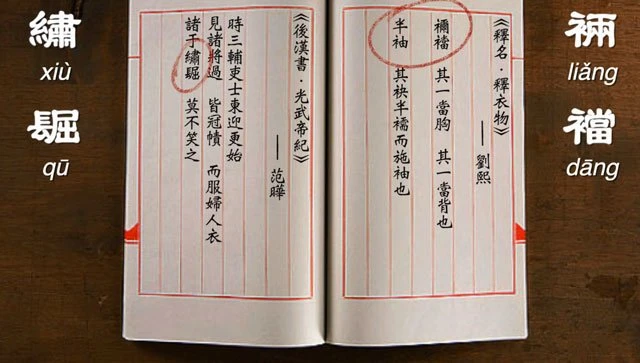 裲
liǎng
襠
dāng
《釋名·釋衣物》
——劉熙
襧襠 其一當胸 其一當背也
半袖 其袂半襦而施袖也
《後漢書·光武帝紀》
——范曄
時三輔吏士東迎更始
見諸將過 皆冠幘 而服婦人衣
諸于繡镼 莫不笑之
繡
xiù
镼
qū